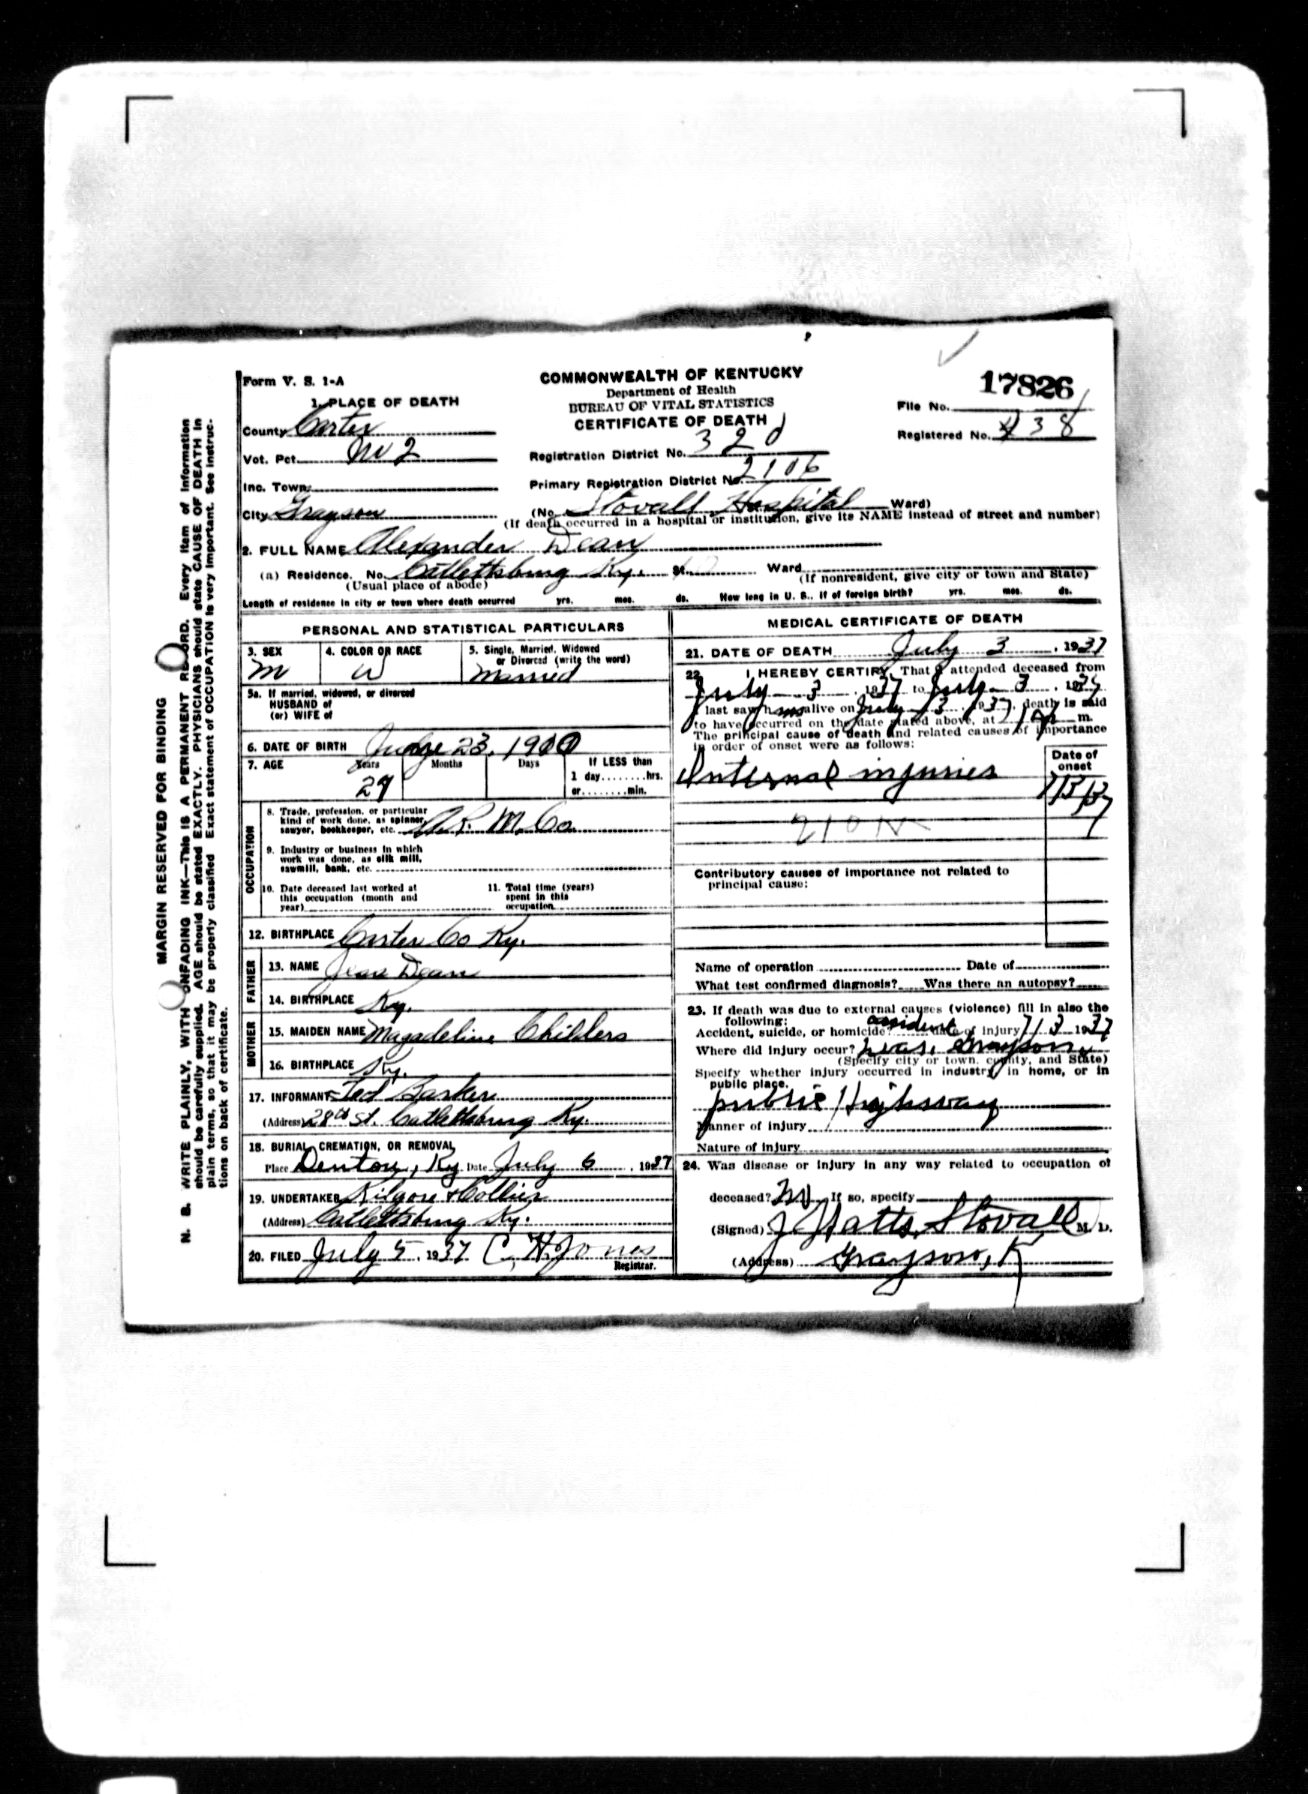 Form V. S. 1-A
COMMONWEALTH OF KENTUCKY
Department of Health
BUREAU OF VITAL STATISTICS
CERTIFICATE OF DEATH
17826
File No.
Registered No. 438
1. PLACE OF DEATH
County Carter
Vot. Pct. No 2
Inc. Town
City Grayson
Registration District No. 320
Primary Registration District No. 2106
(No. Stovall Hospital Ward)
(If death occurred in a hospital or institution, give its NAME instead of street and number)
2. FULL NAME Alexander Dean
(a) Residence. No. Catlettsburg Ky. St. Ward
(Usual place of abode) (If nonresident, give city or town and State)
Length of residence in city or town where death occurred yrs. mos. ds. How long in U. S., if of foreign birth? yrs. mos. ds.
PERSONAL AND STATISTICAL PARTICULARS
3. SEX
M
4. COLOR OR RACE
W
5. Single, Married, Widowed
or Divorced (write the word)
Married
5a. If married, widowed, or divorced
HUSBAND of
(or) WIFE of
6. DATE OF BIRTH 23, 1900
7. AGE Years Months Days If LESS than
1 day........hrs.
or........min.
OCCUPATION
8. Trade, profession, or particular
kind of work done, as spinner,
sawyer, bookkeeper, etc. A. R. M. Co
9. Industry or business in which
work was done, as silk mill,
sawmill, bank, etc.
10. Date deceased last worked at
this occupation (month and
year)
11. Total time (years)
spent in this
occupation
12. BIRTHPLACE Carter Co Ky.
FATHER
13. NAME Dean
14. BIRTHPLACE Ky.
MOTHER
15. MAIDEN NAME Magadeline Childers
16. BIRTHPLACE Ky.
17. INFORMANT Ted Barker
(Address) 28th St. Catlettsburg Ky.
18. BURIAL, CREMATION, OR REMOVAL
Place Denton, Ky Date July 6, 1937
19. UNDERTAKER Kilgore & Collier
(Address) Catlettsburg Ky.
20. FILED July 5, 1937 C. H. Jones
Registrar.
MEDICAL CERTIFICATE OF DEATH
21. DATE OF DEATH July 3, 1937
22. I HEREBY CERTIFY, That I attended deceased from
July 3, 1937 to July 3, 1937
I last saw him alive on July 3, 1937, death is said
to have occurred on the date stated above, at m.
The principal cause of death and related causes of importance
in order of onset were as follows:
Date of
onset
Internal injuries 7/3/37
210
Contributory causes of importance not related to
principal cause:
Name of operation Date of
What test confirmed diagnosis? Was there an autopsy?
23. If death was due to external causes (violence) fill in also the
following:
Accident, suicide, or homicide? accident Date of injury 7/3 1937
Where did injury occur? near Grayson
(Specify city or town, county, and State)
Specify whether injury occurred in industry, in home, or in
public place.
public Highway
Manner of injury
Nature of injury
24. Was disease or injury in any way related to occupation of
deceased? No If so, specify
(Signed) J Watts Stovall M. D.
(Address) Grayson, K
MARGIN RESERVED FOR BINDING
N. B. WRITE PLAINLY, WITH UNFADING INK—This IS A PERMANENT RECORD. Every item of information
should be carefully supplied. AGE should be stated EXACTLY. PHYSICIANS should state CAUSE OF DEATH in
plain terms, so that it may be properly classified. Exact statement of OCCUPATION is very important. See instruc-
tions on back of certificate.